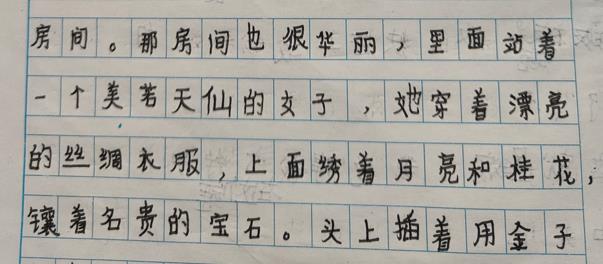 房间。那房间也很华丽，里面站着
一个美若天仙的女子，她穿着漂亮
的丝绸衣服，上面绣着月亮和桂花，
镶着名贵的宝石。头上插着用金子